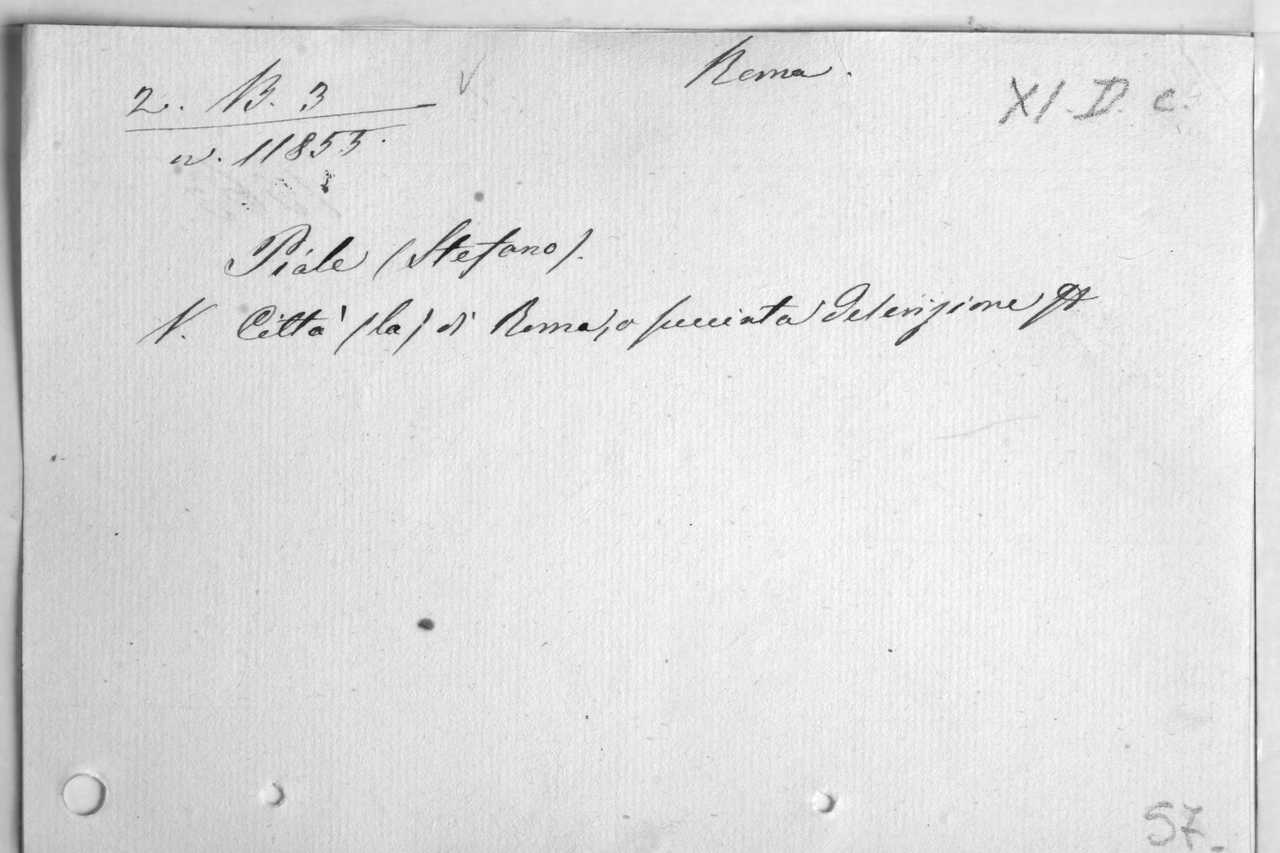 2. B. 3
Roma.
XI. D. c.
n. 11853.
Piale (Stefano).
V. Città (la) di Roma, o succinta Descrizione
57.